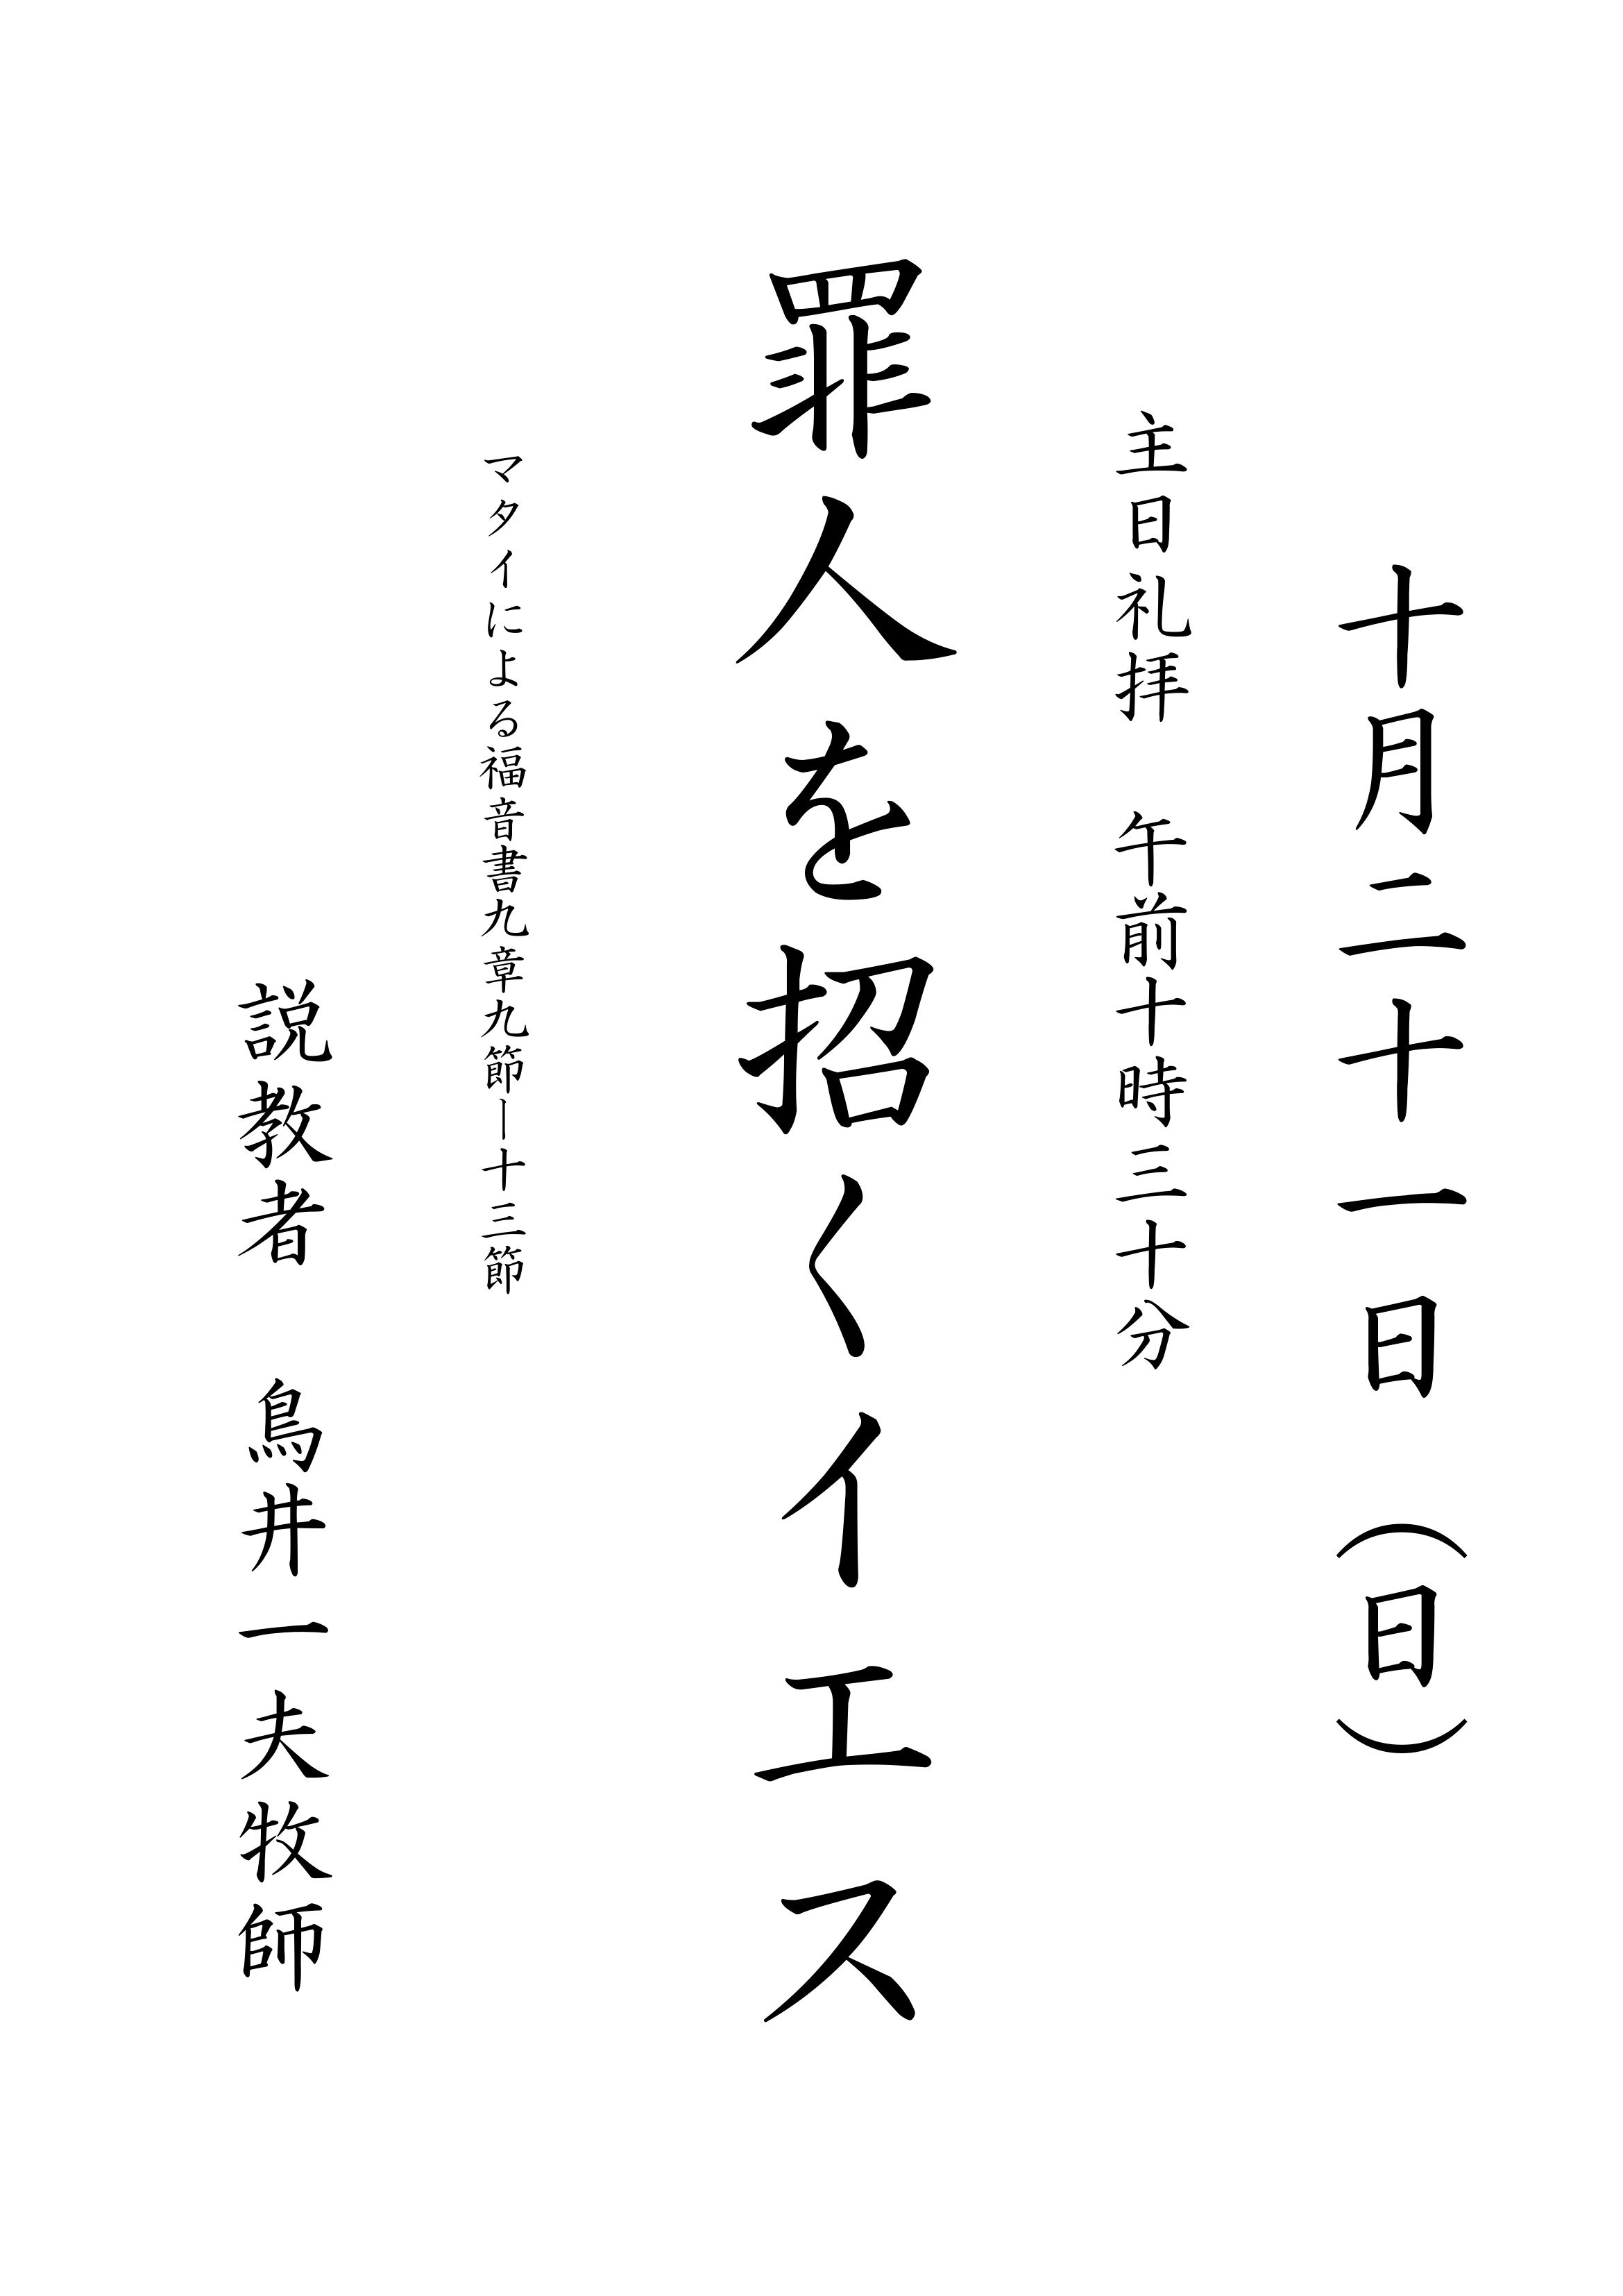 十月二十一日 （日）
主日礼拝 午前十時三十分
罪人を招くイエス
マタイによる福音書九章九節―十三節
説教者 鳥井一夫牧師